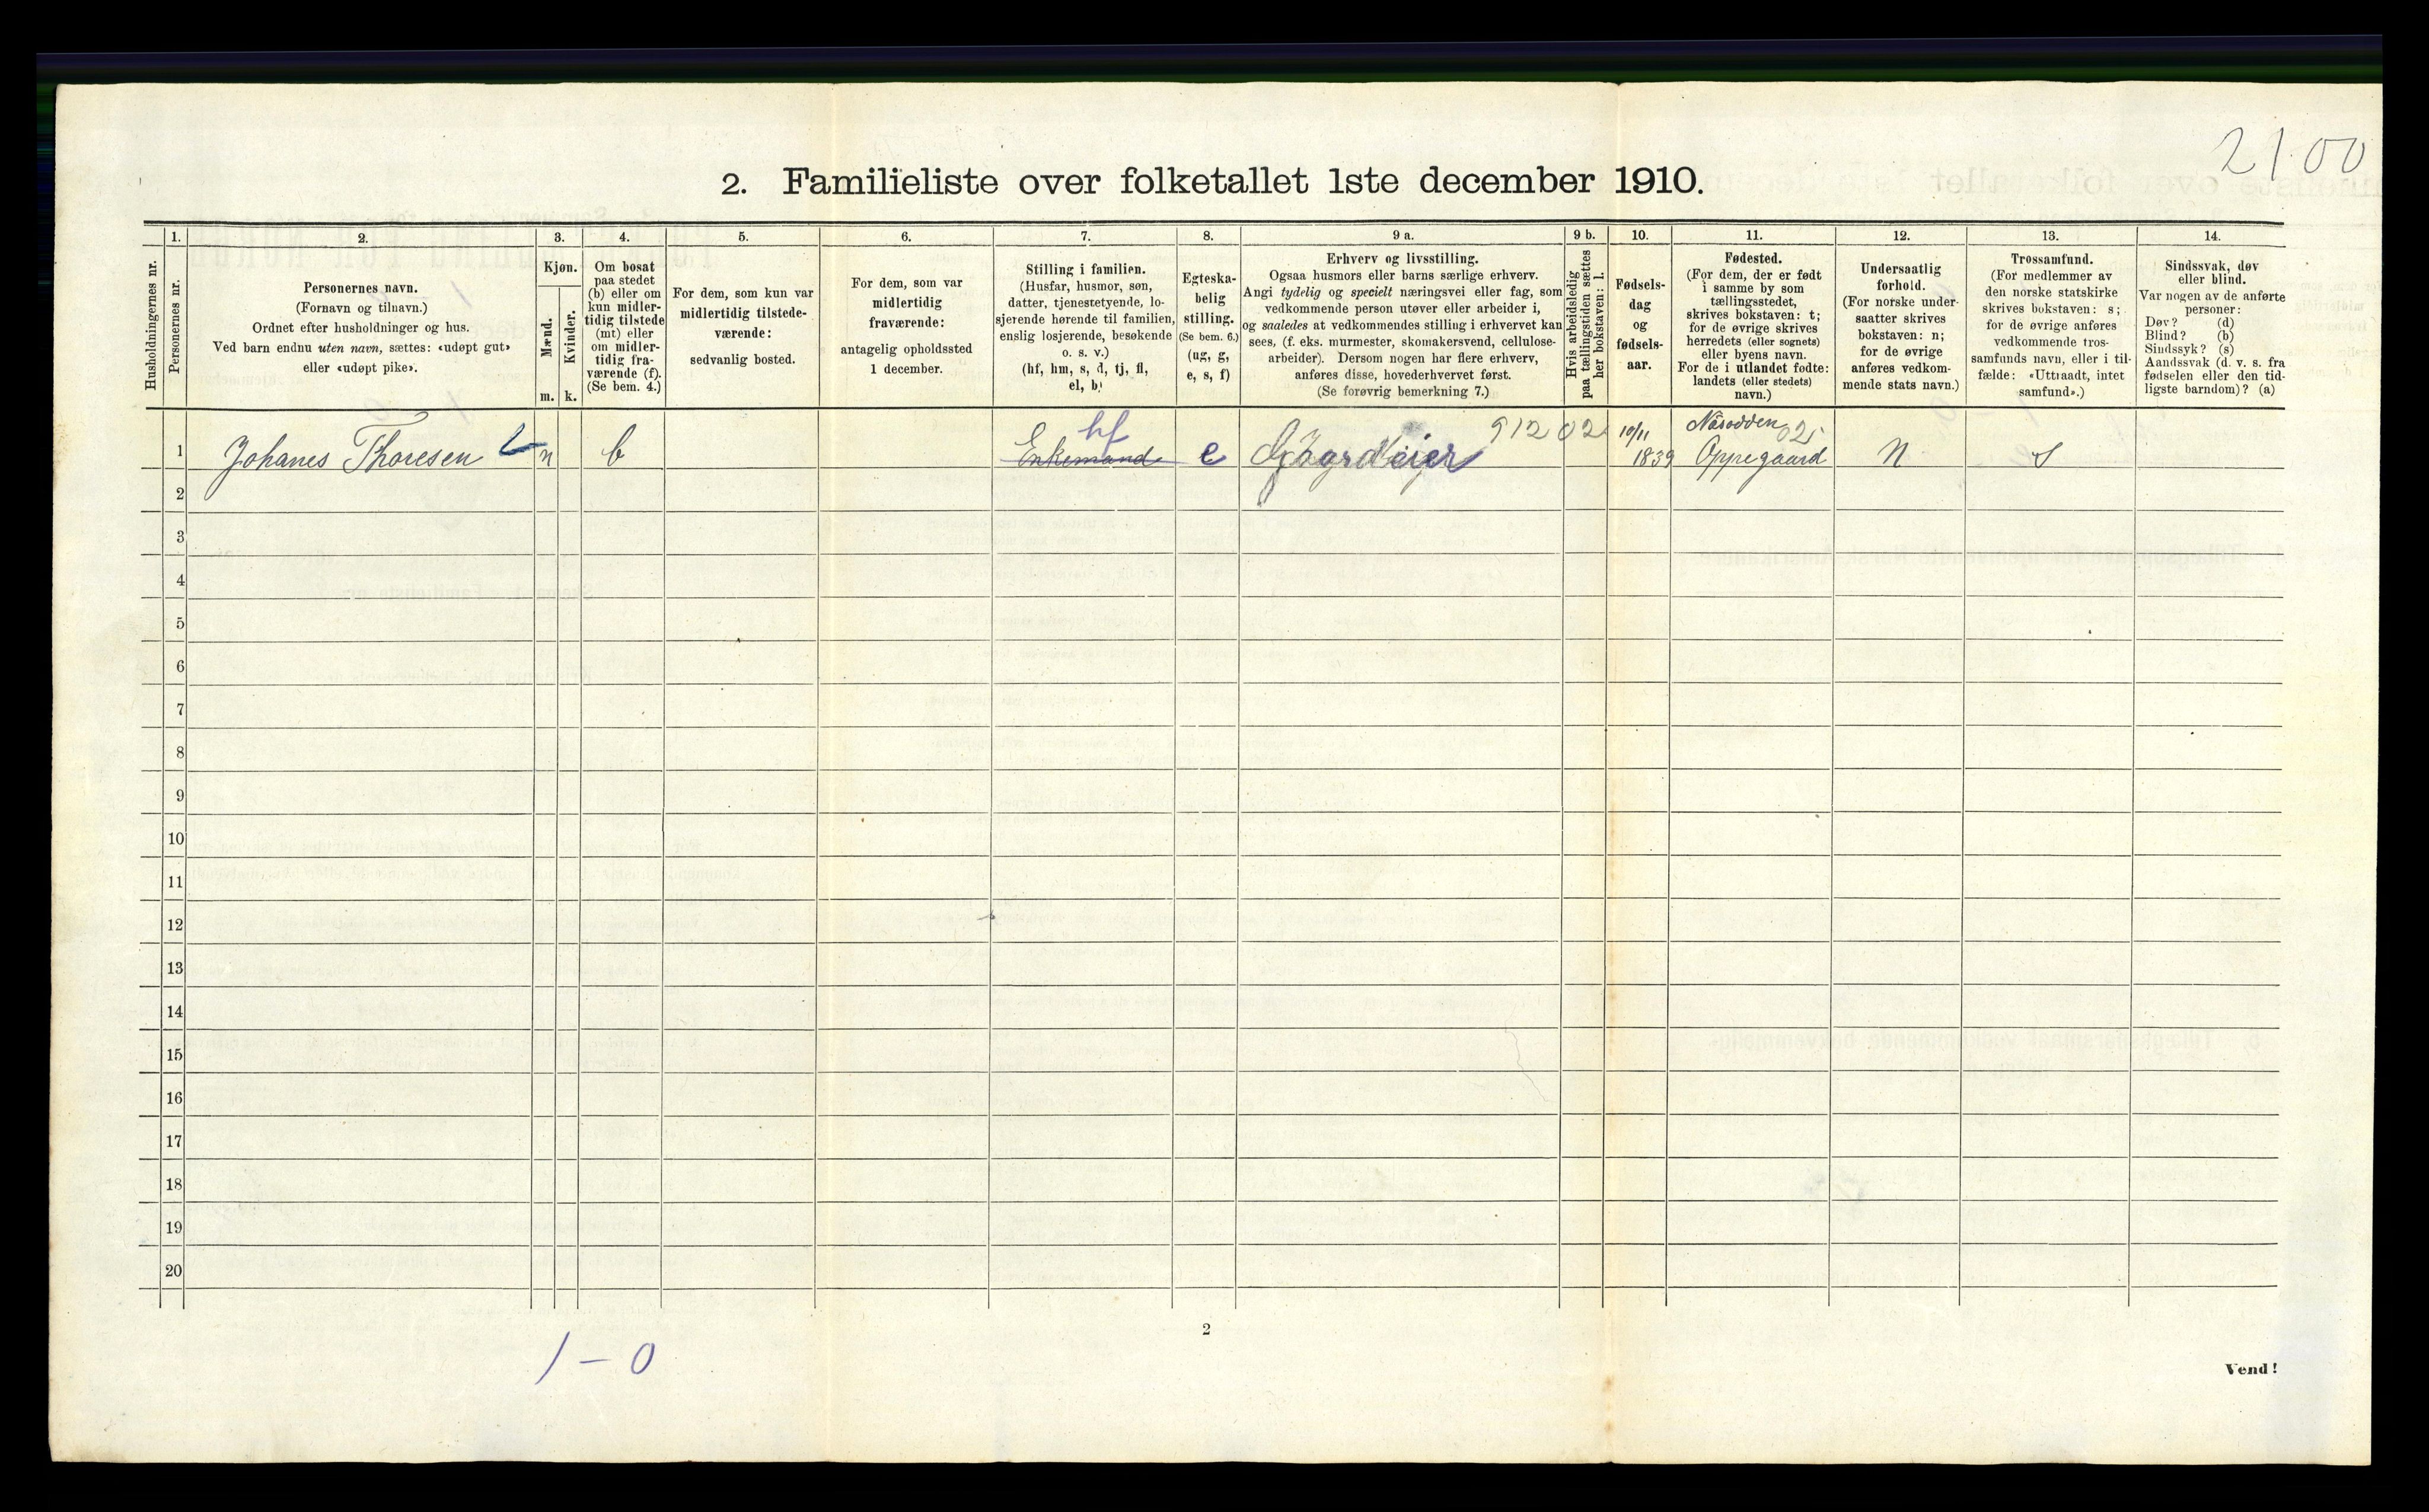 2100
2. Familieliste over folketallet 1ste december 1910.
Husholdningernes nr.
1.
Personernes nr.
2.
Personernes navn.
(Fornavn og tilnavn.)
Ordnet efter husholdninger og hus.
Ved barn endnu uten navn, sættes: «udøpt gut»
eller «udøpt pike».
3.
Kjøn.
Mænd.
Kvinder.
m. k.
4.
Om bosat
paa stedet
(b) eller om
kun midler-
tidig tilstede
(mt) eller
om midler-
tidig fra-
værende (f).
(Se bem. 4.)
5.
For dem, som kun var
midlertidig tilstede-
værende:
sedvanlig bosted.
6.
For dem, som var
midlertidig
fraværende:
antagelig opholdssted
1 december.
7.
Stilling i familien.
(Husfar, husmor, søn,
datter, tjenestetyende, lo-
sjerende hørende til familien,
enslig losjerende, besøkende
o. s. v.)
(hf, hm, s, d, tj, fl,
el, b)
8.
Egteska-
belig
stilling.
(Se bem. 6.)
(ug, g,
e, s, f)
9 a.
Erhverv og livsstilling.
Ogsaa husmors eller barns særlige erhverv.
Angi tydelig og specielt næringsvei eller fag, som
vedkommende person utøver eller arbeider i,
og saaledes at vedkommendes stilling i erhvervet kan
sees, (f. eks. murmester, skomakersvend, cellulose-
arbeider). Dersom nogen har flere erhverv,
anføres disse, hovederhvervet først.
(Se forøvrig bemerkning 7.)
9 b.
Hvis arbeidsledig
paa tællingstiden sættes
her bokstaven: l.
10.
Fødsels-
dag
og
fødsels-
aar.
11.
Fødested.
(For dem, der er født
i samme by som
tællingsstedet,
skrives bokstaven: t;
for de øvrige skrives
herredets (eller sognets)
eller byens navn.
For de i utlandet fødte:
landets (eller stedets)
navn.)
12.
Undersaatlig
forhold.
(For norske under-
saatter skrives
bokstaven: n;
for de øvrige
anføres vedkom-
mende stats navn.)
13.
Trossamfund.
(For medlemmer av
den norske statskirke
skrives bokstaven: s;
for de øvrige anføres
vedkommende tros-
samfunds navn, eller i til-
fælde: «Uttraadt, intet
samfund».)
14.
Sindssvak, døv
eller blind.
Var nogen av de anførte
personer:
Døv? (d)
Blind? (b)
Sindssyk? (s)
Aandssvak (d. v. s. fra
fødselen eller den tid-
ligste barndom)? (a)
hf 912 02 10/11 Næsodden 025
1 Johanes Thoresen b Enkemand e 1839 Oppegaard N S
2
3
4
5
6
7
8
9
10
11
12
13
14
15
16
17
18
19
20
2
1 – 0
Vend!